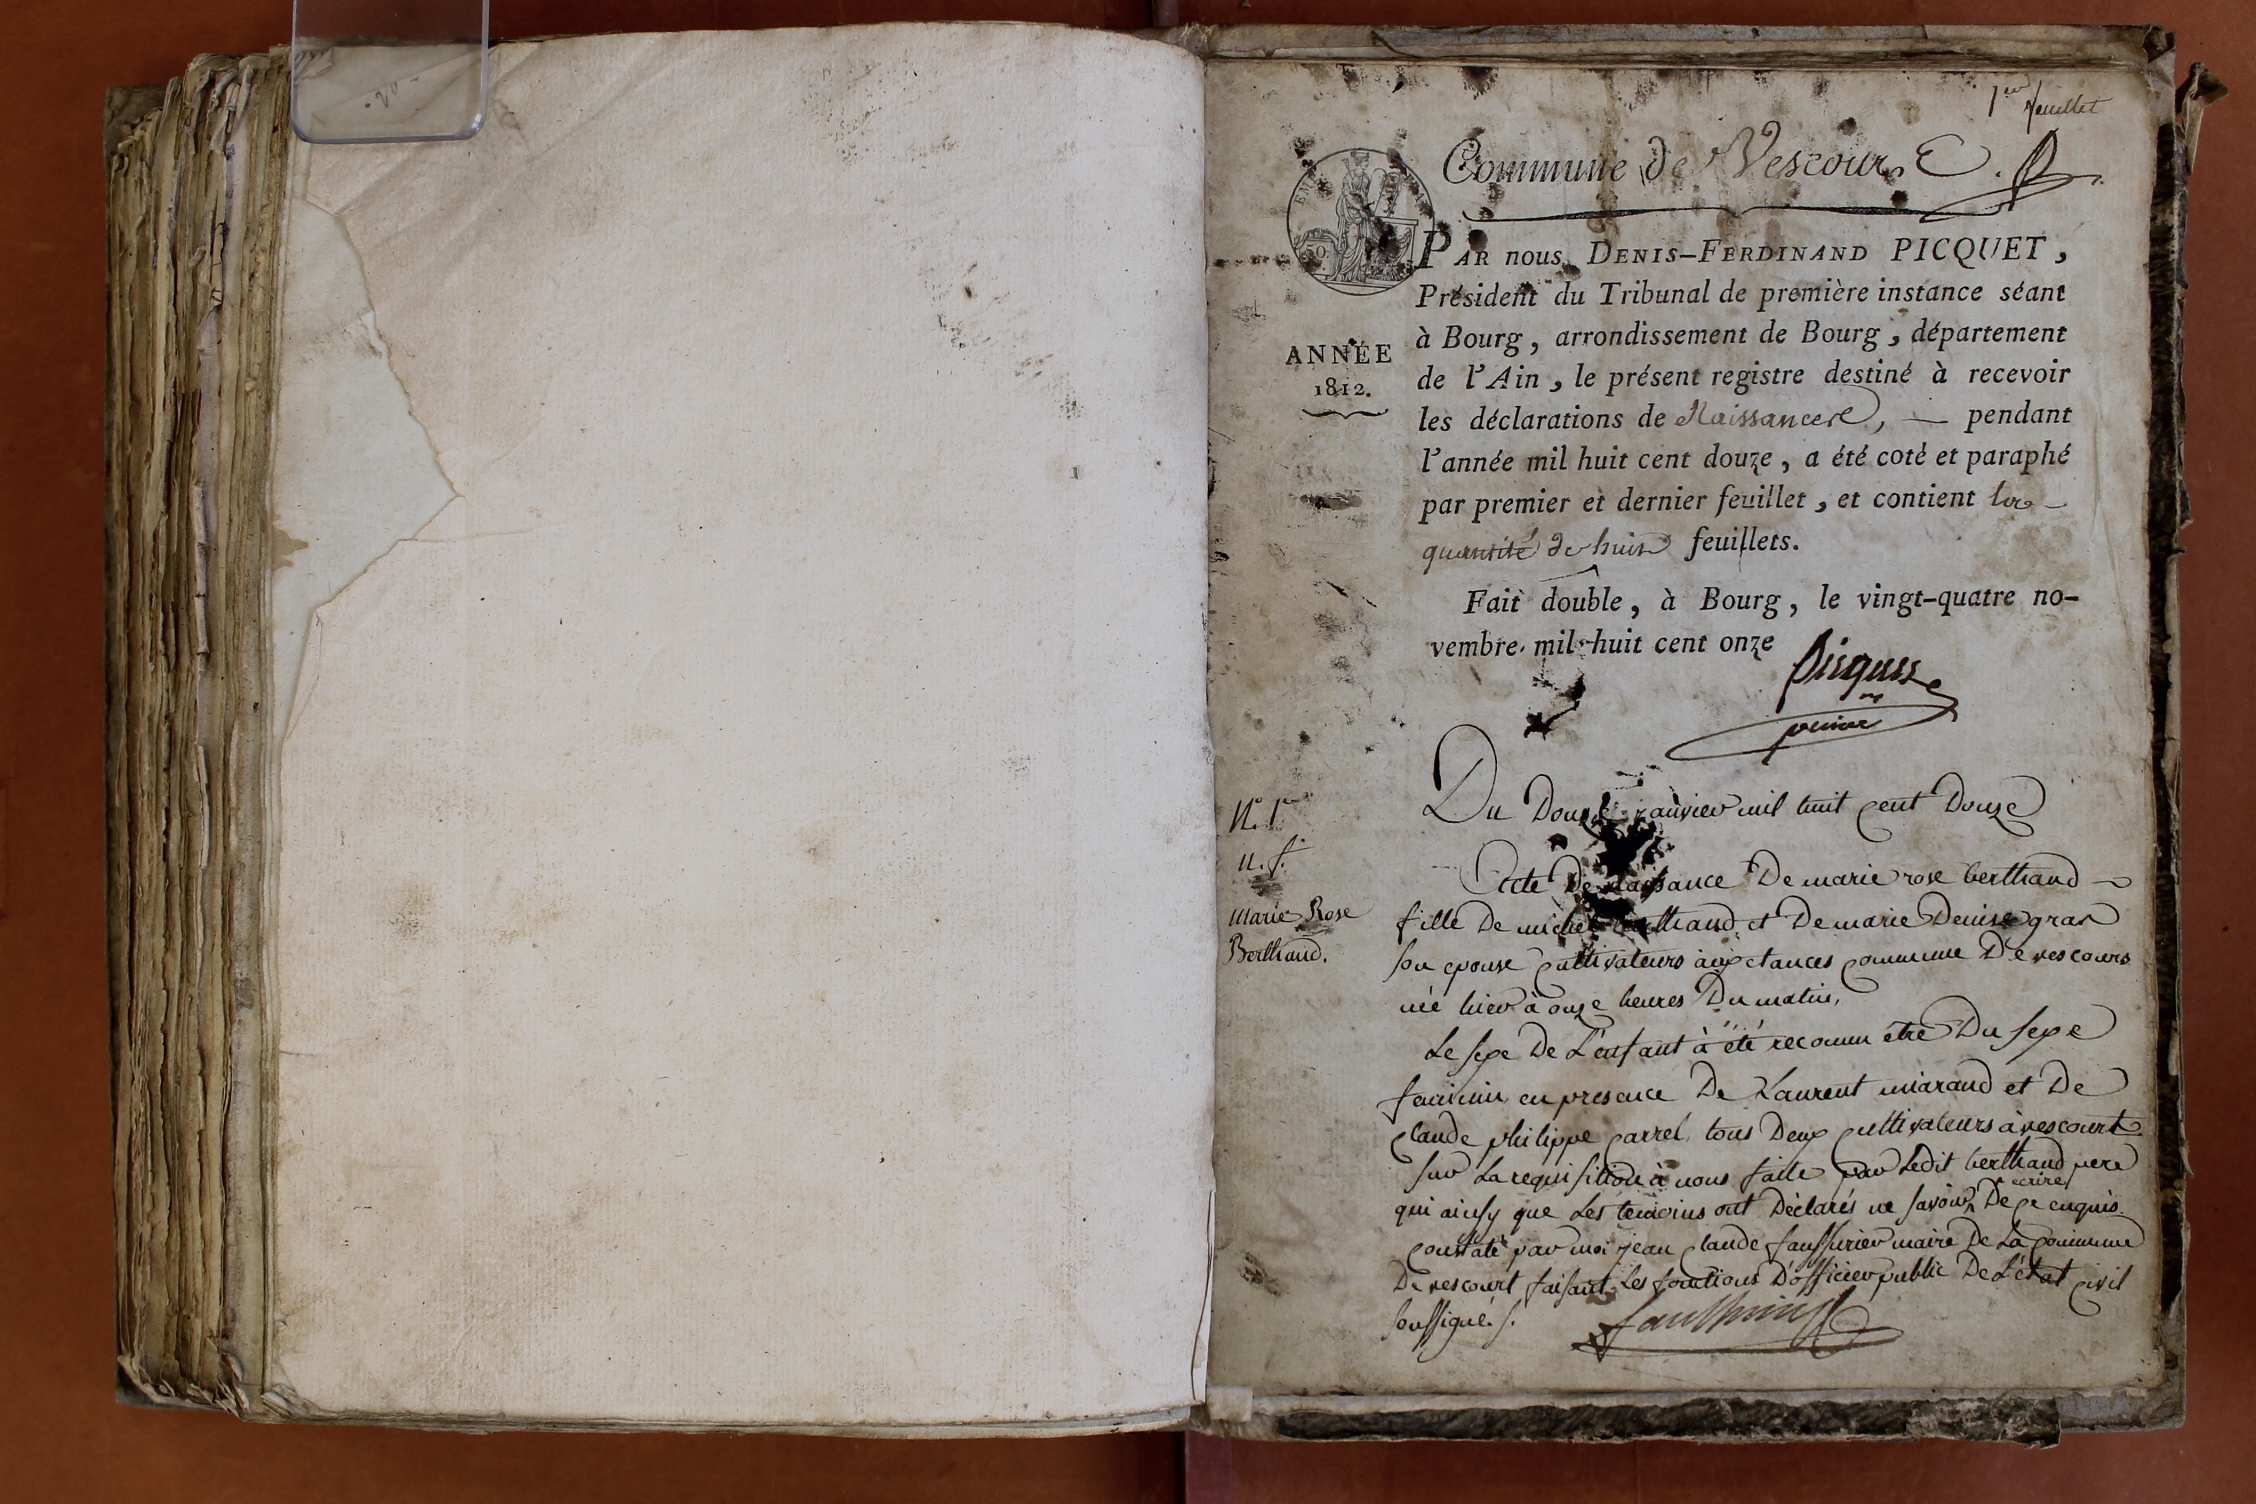 1er feuillet
Commune de Vescours
PAR nous, DENIS-FERDINAND PICQUET,
Président du Tribunal de première instance séant
à Bourg, arrondissement de Bourg, département
de l'Ain, le présent registre destiné à recevoir
les déclarations de Naissances, — pendant
l'année mil huit cent douze, a été coté et paraphé
par premier et dernier feuillet, et contient la
quantité de huit feuillets.
ANNÉE
1812.
50
Fait double, à Bourg, le vingt-quatre no-
vembre mil huit cent onze
Picquet
N.° 1er
n. f.
Marie Rose
Berthaud.
Du Douze janvier mil huit cent Douze
Acte De naissance De marie rose berthaud
fille De michel berthaud et De marie Denise gras
son epouse cultivateurs aux etances commune De vescours
née hier à onze heures Du matin,
Le sexe De L'enfant à été reconnu être Du sexe
feminin en presence De Laurent miraud et De
claude philippe carrel tous Deux cultivateurs à vescourt
sur La requisition à nous faite par Ledit berthaud pere
qui ainsy que Les temoins ont Déclarés ne savoir ecrire De ce enquis.
constaté par moi jean claude faussurier maire De La commune
De vescourt faisant Les fonctions D'officier public De L'état civil
soussigné.